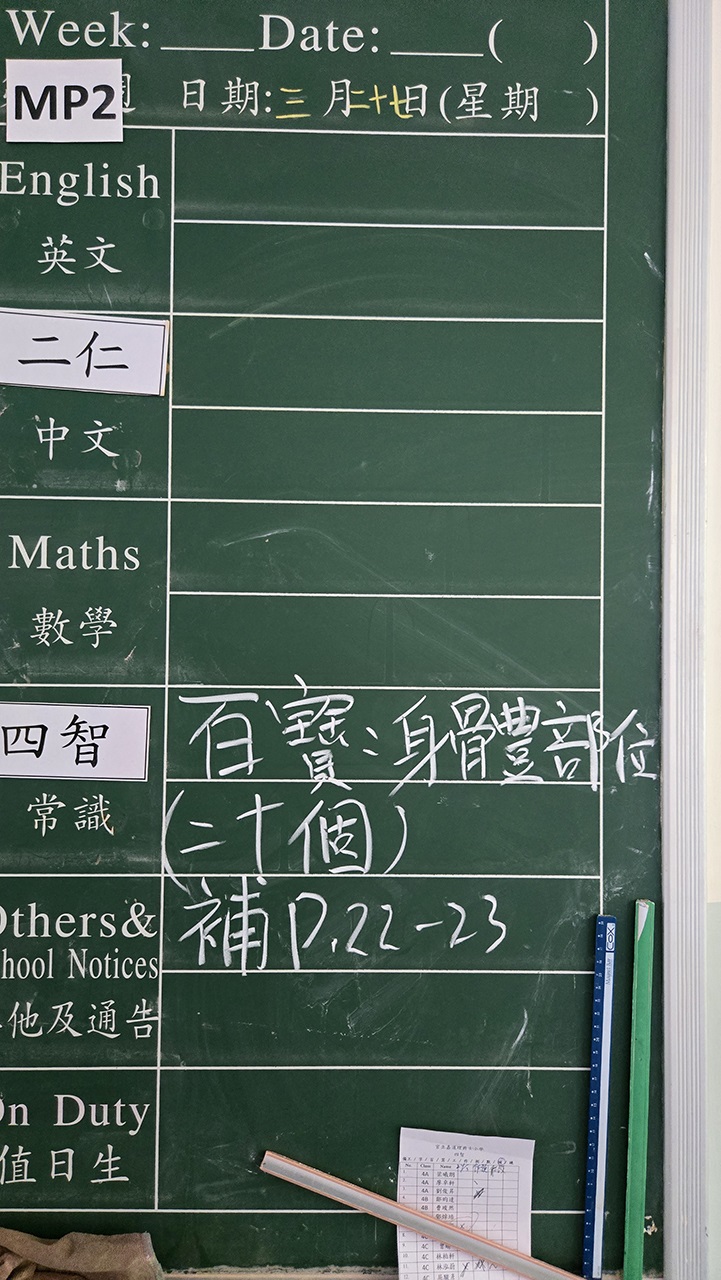 Week: Date: ( )
MP2 週 日期:三月二十七日(星期 )
English
英文
二仁
中文
Maths
數學
四智
百寶:身體豐部位
常識
(二十個)
Others&
補P.22-23
School Notices
其他及通告
On Duty
值日生